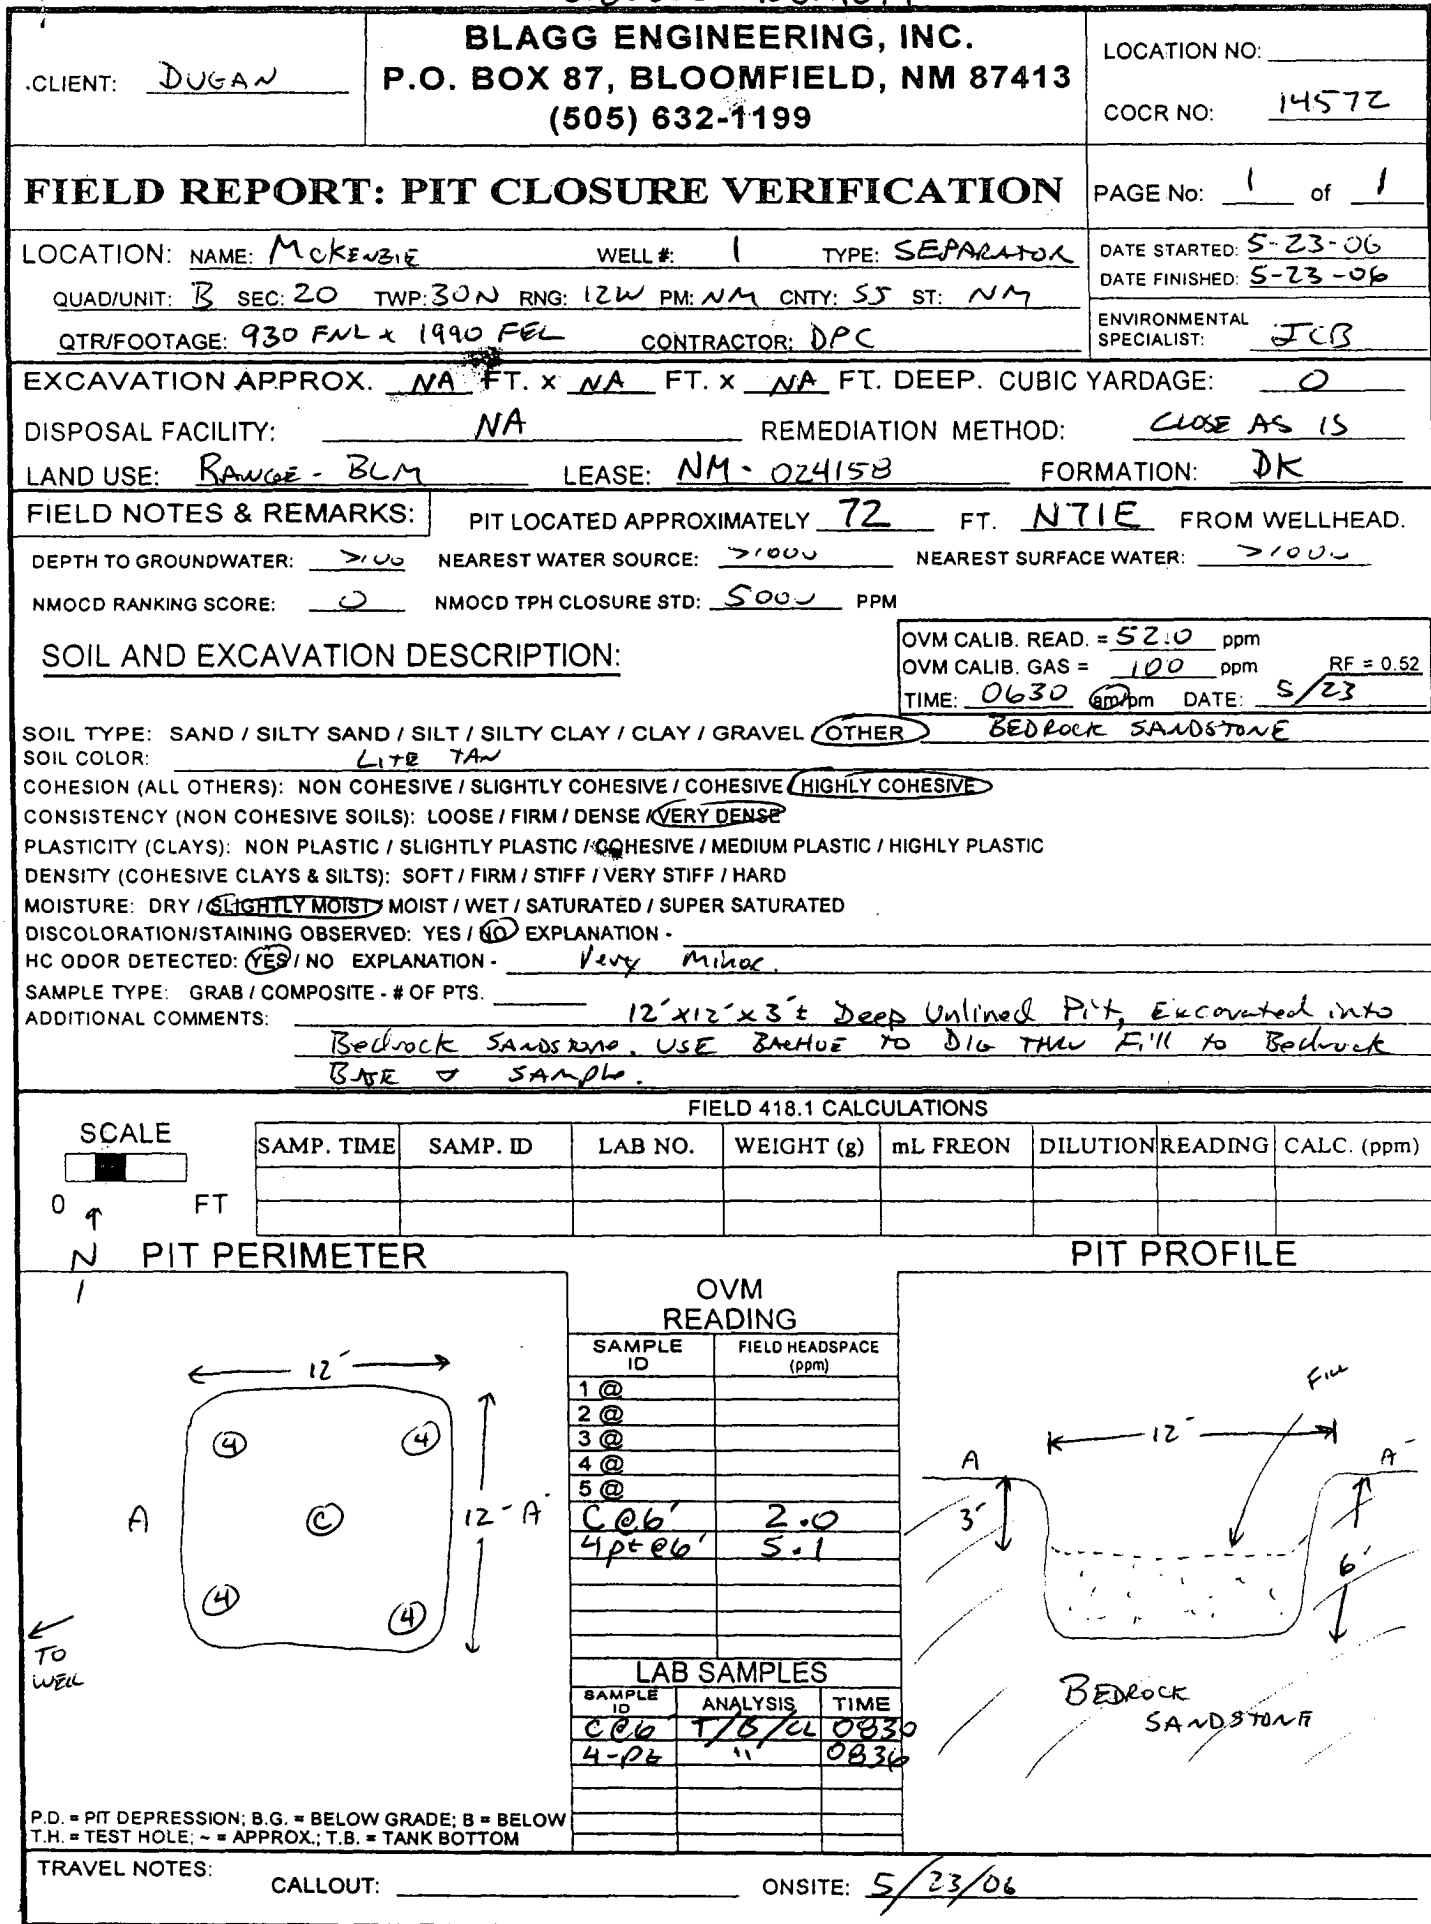 BLAGG ENGINEERING, INC.
P.O. BOX 87, BLOOMFIELD, NM 87413
(505) 632-1199
CLIENT: DUGAN
LOCATION NO:
COCR NO: 14572
FIELD REPORT: PIT CLOSURE VERIFICATION
PAGE No: 1 of 1
LOCATION: NAME: McKENZIE WELL #: 1 TYPE: SEPARATOR
QUAD/UNIT: B SEC: 20 TWP: 30N RNG: 12W PM: NM CNTY: SJ ST: NM
QTR/FOOTAGE: 930 FNL x 1990 FEL CONTRACTOR: DPC
DATE STARTED: 5-23-06
DATE FINISHED: 5-23-06
ENVIRONMENTAL
SPECIALIST: JCB
EXCAVATION APPROX. NA FT. x NA FT. x NA FT. DEEP. CUBIC YARDAGE: 0
DISPOSAL FACILITY: NA REMEDIATION METHOD: CLOSE AS IS
LAND USE: RANGE - BLM LEASE: NM - 024158 FORMATION: DK
FIELD NOTES & REMARKS: PIT LOCATED APPROXIMATELY 72 FT. N71E FROM WELLHEAD.
DEPTH TO GROUNDWATER: >100 NEAREST WATER SOURCE: >1000 NEAREST SURFACE WATER: >1000
NMOCD RANKING SCORE: 0 NMOCD TPH CLOSURE STD: 5000 PPM
SOIL AND EXCAVATION DESCRIPTION:
OVM CALIB. READ. = 52.0 ppm
OVM CALIB. GAS = 100 ppm RF = 0.52
TIME: 0630 am/pm DATE: 5/23
SOIL TYPE: SAND / SILTY SAND / SILT / SILTY CLAY / CLAY / GRAVEL / OTHER BEDROCK SANDSTONE
SOIL COLOR: LITE TAN
COHESION (ALL OTHERS): NON COHESIVE / SLIGHTLY COHESIVE / COHESIVE / HIGHLY COHESIVE
CONSISTENCY (NON COHESIVE SOILS): LOOSE / FIRM / DENSE / VERY DENSE
PLASTICITY (CLAYS): NON PLASTIC / SLIGHTLY PLASTIC / COHESIVE / MEDIUM PLASTIC / HIGHLY PLASTIC
DENSITY (COHESIVE CLAYS & SILTS): SOFT / FIRM / STIFF / VERY STIFF / HARD
MOISTURE: DRY / SLIGHTLY MOIST / MOIST / WET / SATURATED / SUPER SATURATED
DISCOLORATION/STAINING OBSERVED: YES / NO EXPLANATION -
HC ODOR DETECTED: YES / NO EXPLANATION - Very Minor.
SAMPLE TYPE: GRAB / COMPOSITE - # OF PTS.
ADDITIONAL COMMENTS: 12'x12'x3'± Deep Unlined Pit, Excavated into
Bedrock SANDSTONE. USE BACKHOE TO DIG THRU Fill to Bedrock
BASE & SAMPLE.
FIELD 418.1 CALCULATIONS
SCALE
0 FT
SAMP. TIME SAMP. ID LAB NO. WEIGHT (g) mL FREON DILUTION READING CALC. (ppm)
N
PIT PERIMETER
12'
4 4
A C 12' A'
4 4
TO
WELL
OVM
READING
SAMPLE ID FIELD HEADSPACE (ppm)
1 @
2 @
3 @
4 @
5 @
C @ 6' 2.0
4pt @ 6' 5.1
LAB SAMPLES
SAMPLE ID ANALYSIS TIME
C@6' T/B/CL 0830
4-pt " 0836
PIT PROFILE
Fill
12'
A A'
3'
6'
BEDROCK
SANDSTONE
P.D. = PIT DEPRESSION; B.G. = BELOW GRADE; B = BELOW
T.H. = TEST HOLE; ~ = APPROX.; T.B. = TANK BOTTOM
TRAVEL NOTES:
CALLOUT: ONSITE: 5/23/06